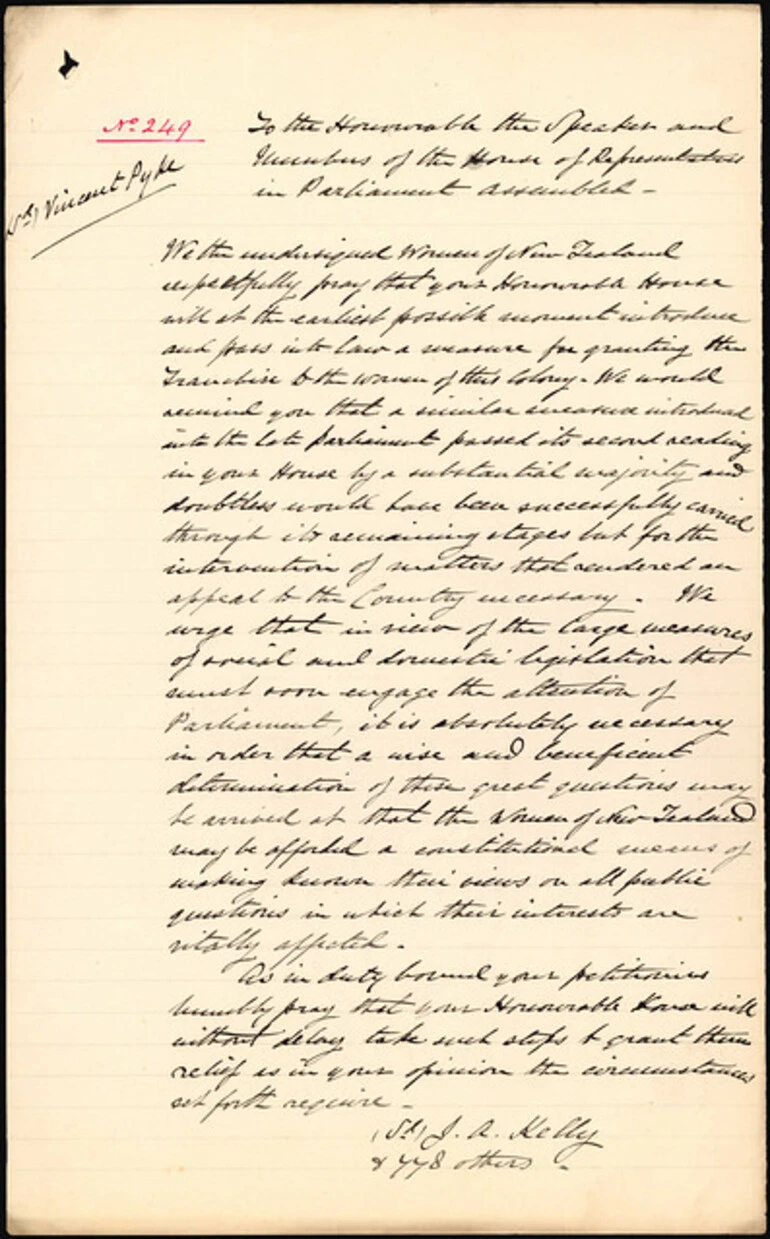 No 249
(Sd) Vincent Pyke
To the Honourable the Speaker and
Members of the House of Representatives
in Parliament assembled -
We the undersigned Women of New Zealand
respectfully pray that your Honourable House
will at the earliest possible moment introduce
and pass into law a measure for granting the
Franchise to the women of this Colony. We would
remind you that a similar measure introduced
into the late Parliament passed its second reading
in your House by a substantial majority and
doubtless would have been successfully carried
through its remaining stages but for the
intervention of matters that rendered an
appeal to the Country necessary. We
urge that in view of the large measures
of social and domestic legislation that
must soon engage the attention of
Parliament, it is absolutely necessary
in order that a wise and beneficent
determination of these great questions may
be arrived at that the Women of New Zealand
may be afforded a constitutional means of
making known their views on all public
questions in which their interests are
vitally affected.
As in duty bound your petitioners
humbly pray that your Honourable House will
without delay take such steps to grant them
relief as in your opinion the circumstances
set forth require -
(Sd) J. A. Kelly
& 778 others -